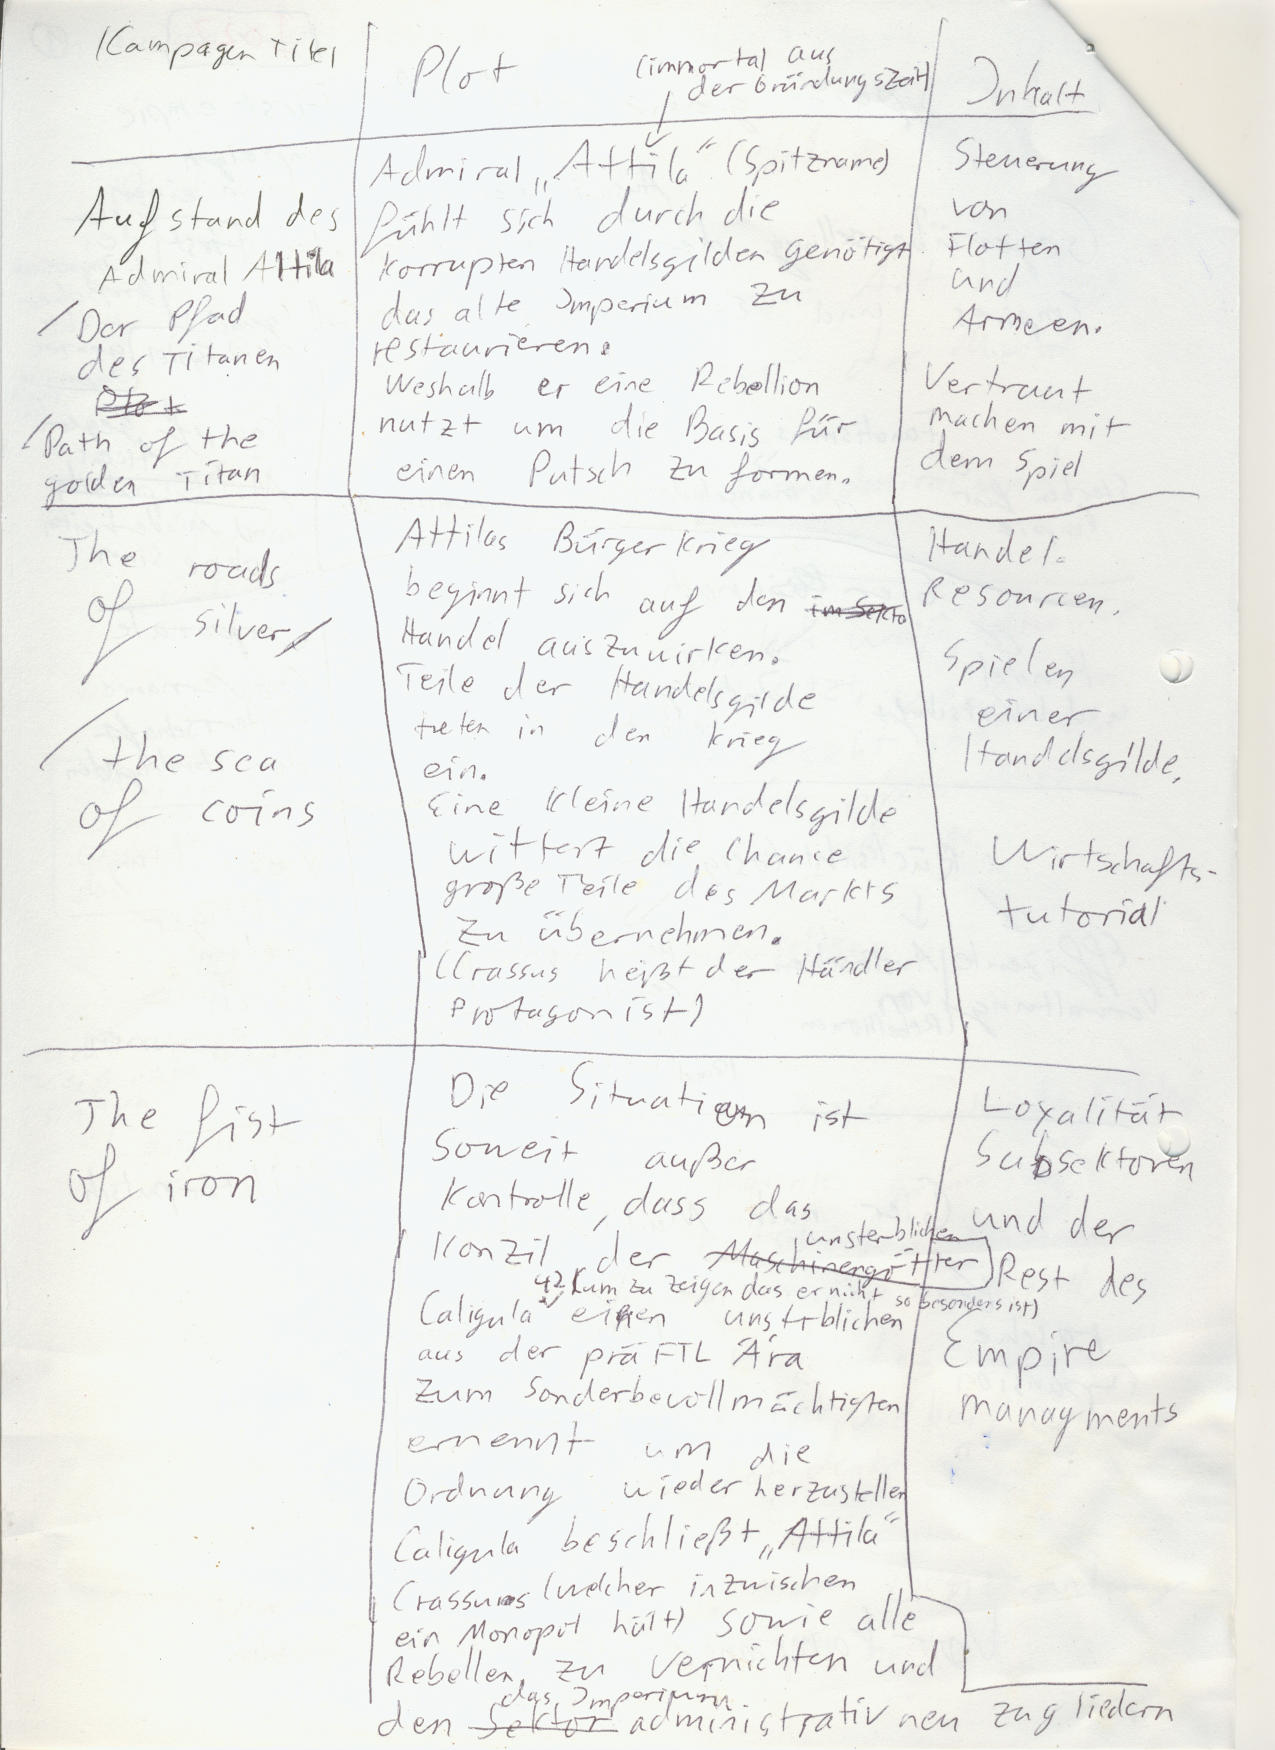 Kampagen Titel
Plot
(immortal aus
der Gründungszeit)
Inhalt
Aufstand des
Admiral Attila
/Der Pfad
des Titanen
Plot
/Path of the
golden Titan
Admiral „Attila“ (Spitzname)
fühlt sich durch die
korrupten Handelsgilden genötigt
das alte Imperium zu
restaurieren.
Weshalb er eine Rebellion
nutzt um die Basis für
einen Putsch zu formen.
Steuerung
von
Flotten
und
Armeen.
Vertraut
machen mit
dem Spiel
The roads
of silver/
/the sea
of coins
Attilas Bürgerkrieg
beginnt sich auf den im Sekto
Handel auszuwirken.
Teile der Handelsgilde
treten in den Krieg
ein.
Eine kleine Handelsgilde
wittert die Chance
große Teile des Markts
zu übernehmen.
(Crassus heißt der Händler
Protagonist)
Handel.
Resourcen.
Spielen
einer
Handelsgilde.
Wirtschafts-
tutorial
The fist
of iron
Die Situation ist
Soweit außer
Kontrolle, dass das
unsterblichen
Konzil der Maschinengötter
42 (um zu zeigen das er nicht so besonders ist)
Caligula einen unstrblichen
aus der prä FTL Ära
zum Sonderbevollmächtigten
ernennt um die
Ordnung wieder herzustellen
Caligula beschließt „Attila“
Crassus (welcher inzwischen
ein Monopol hält) sowie alle
Rebellen zu vernichten und
das Imperium
den Sektor administrativ neu zu gliedern
Loyalität
Subsektoren
und der
Rest des
Empire
managments